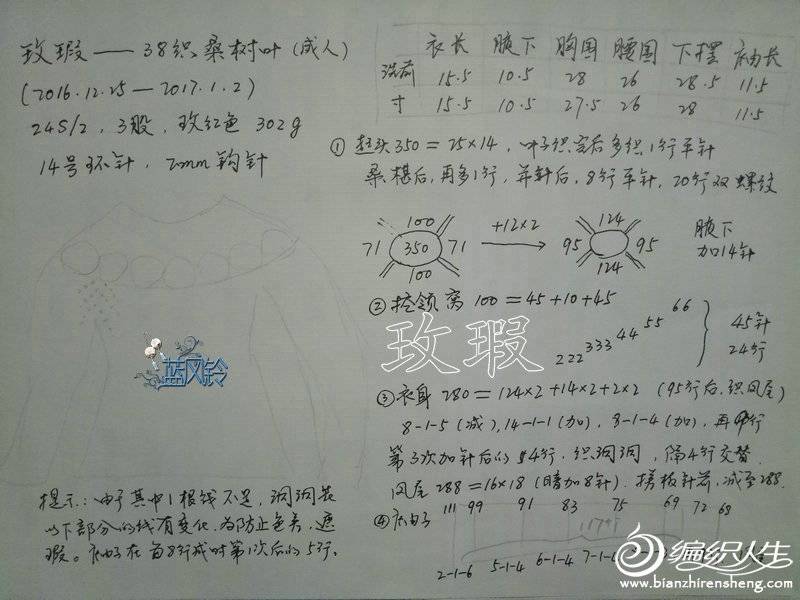 玫瑕——38织桑树叶(成人)
(2016.12.25—2017.1.2)
24S/2,3股,玫红色302g
14号环针,2mm钩针
衣长 腋下 胸围 腰围 下摆 袖长
洗前 15.5 10.5 28 26 28.5 11.5
寸 15.5 10.5 27.5 26 28 11.5
①起头350=25×14,叶子织完后多织1行平针
桑椹后,再多1行,并针后,8行平针,20行双螺纹
100 124
71 350 71 +12×2 95 95 腋下
加14针
100 124
②挖领窝 100=45+10+45
222 333 44 55 66 45针
24行
玫瑕
③衣身 280=124×2+14×2+2×2 (95行后,织凤尾)
8-1-5(减),14-1-1(加),8-1-4(加),再
第3次加针后的 4行,织洞洞,隔4行交替
凤尾288=16×18(暗加8针).搓板针前,减至288.
④袖子 111 99 91 83 75 69 72 68
2-1-6 5-1-4 6-1-4 7-1-
提示:由于其中1根线不足,洞洞花
以下部分的线有变化,为防止色差,遮
瑕。袖子在首8行减时第1次后的5行,
蓝风铃
编织人生
www.bianzhirensheng.com